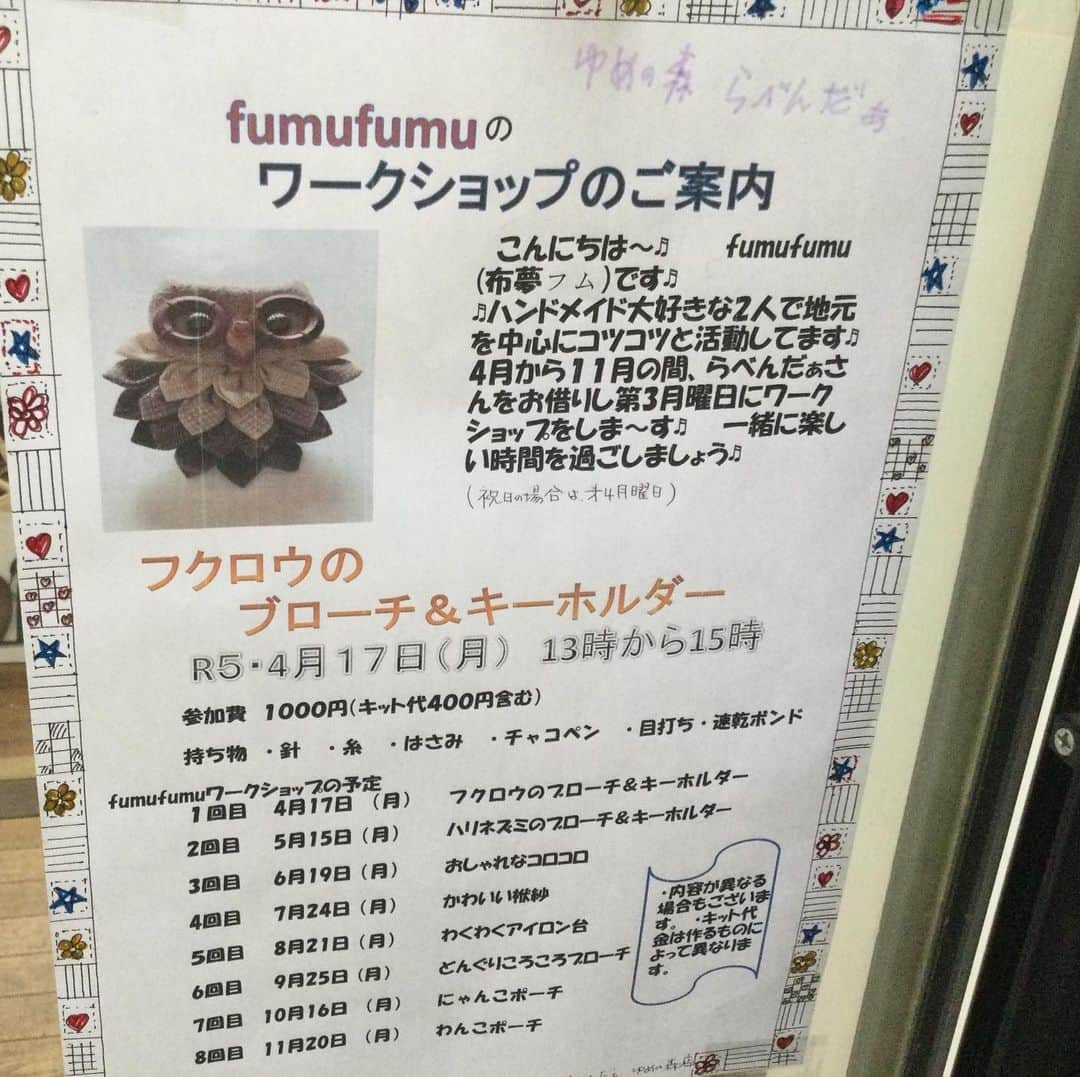 ゆめの森 らべんだぁ
fumufumuの
ワークショップのご案内
こんにちは～♬ fumufumu
(布夢フム)です♬
♬ハンドメイド大好きな2人で地元
を中心にコツコツと活動してます♬
4月から11月の間、らべんだぁさ
んをお借りし第3月曜日にワーク
ショップをしま～す♬ 一緒に楽し
い時間を過ごしましょう♬
(祝日の場合は、才4月曜日)
フクロウの
ブローチ＆キーホルダー
R5・4月17日(月) 13時から15時
参加費 1000円(キット代400円含む)
持ち物 ・針 ・糸 ・はさみ ・チャコペン ・目打ち・速乾ボンド
fumufumuワークショップの予定
1回目 4月17日 (月) フクロウのブローチ＆キーホルダー
2回目 5月15日(月) ハリネズミのブローチ＆キーホルダー
3回目 6月19日(月) おしゃれなコロコロ
4回目 7月24日(月) かわいい袱紗
5回目 8月21日(月) わくわくアイロン台
6回目 9月25日(月) どんぐりころころブローチ
7回目 10月16日(月) にゃんこポーチ
8回目 11月20日(月) わんこポーチ
・内容が異なる
場合もございま
す。・キット代
金は作るものに
よって異なりま
す。
ゆめの森店